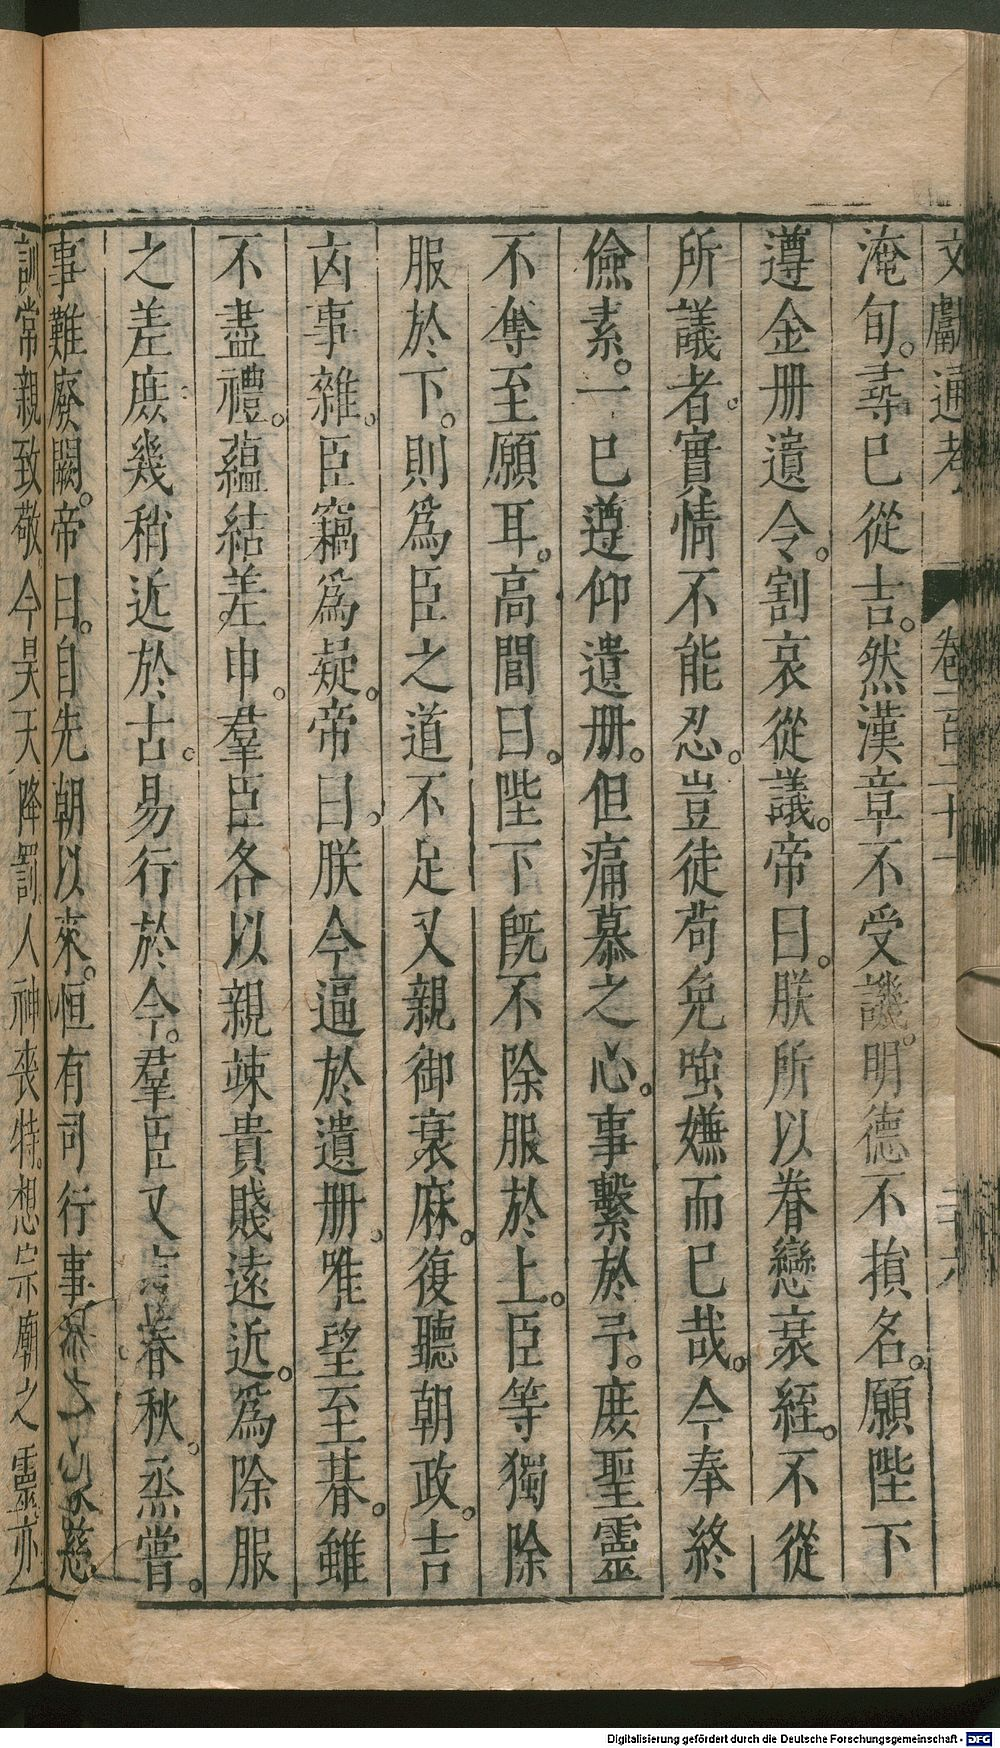 文獻通考 卷一百二十一
淹旬。尋已從吉。然漢章不受譏。明德不損名。願陛下
遵金册遺令。割哀從議。帝曰。朕所以眷戀衰絰。不從
所議者。實情不能忍。豈徒苟免嗤嫌而已哉。今奉終
儉素。一已遵仰遺册。但痛慕之心。事繫於予。庶聖靈
不奪至願耳。高閭曰。陛下旣不除服於上。臣等獨除
服於下。則爲臣之道不足又親御衰麻。復聽朝政。吉
凶事雜。臣竊爲疑。帝曰。朕今逼於遺册。唯望至朞。雖
不盡禮。蘊結差申。羣臣各以親疎貴賤遠近。爲除服
之差庶幾稍近於古。易行於今。羣臣又言春秋。烝嘗。
事難廢闕。帝曰。自先朝以來。恒有司行事 慈
訓常親致敬。今昊天降罰人神喪特。想宗廟之靈亦
Digitalisierung gefördert durch die Deutsche Forschungsgemeinschaft - DFG